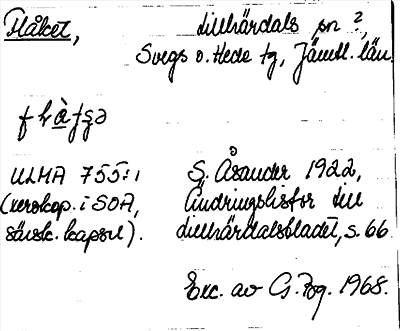 Flåket, Lillhärdals sn ?,
Svegs o. Hede tg, Jämtl. län
ULMA 755:1 S. Åsander 1922,
(xeroxkop. i SOA, Ändringslistor till
särsk. kapsel). Lillhärdalsbladet, s. 66.
Exc. av G. 1968.